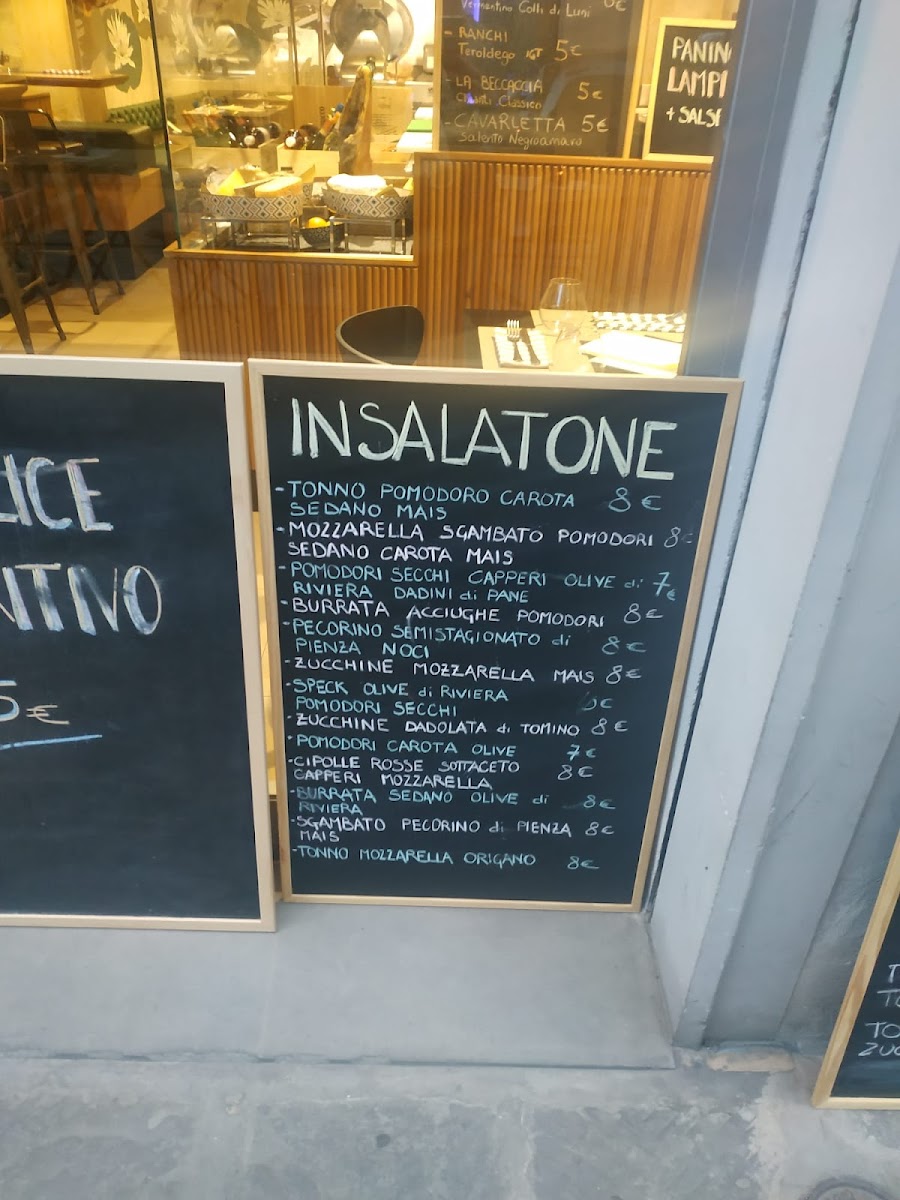 Vermentino Colli di Luni
- RANCHI 5€
Teroldego IGT
- LA BECCACCIA 5€
Chianti Classico
- CAVARLETTA 5€
Salento Negroamaro
PANINO
LAMPR
+ SALSE
LICE
NTINO
5€
INSALATONE
- TONNO POMODORO CAROTA 8€
SEDANO MAIS
- MOZZARELLA SGAMBATO POMODORI 8€
SEDANO CAROTA MAIS
- POMODORI SECCHI CAPPERI OLIVE di 7€
RIVIERA DADINI di PANE
- BURRATA ACCIUGHE POMODORI 8€
- PECORINO SEMISTAGIONATO di 8€
PIENZA NOCI
- ZUCCHINE MOZZARELLA MAIS 8€
- SPECK OLIVE di RIVIERA
POMODORI SECCHI €
- ZUCCHINE DADOLATA di TOMINO 8€
- POMODORI CAROTA OLIVE 7€
- CIPOLLE ROSSE SOTTACETO 8€
CAPPERI MOZZARELLA
- BURRATA SEDANO OLIVE di 8€
RIVIERA
- SGAMBATO PECORINO di PIENZA 8€
MAIS
- TONNO MOZZARELLA ORIGANO 8€
TO
ZUC